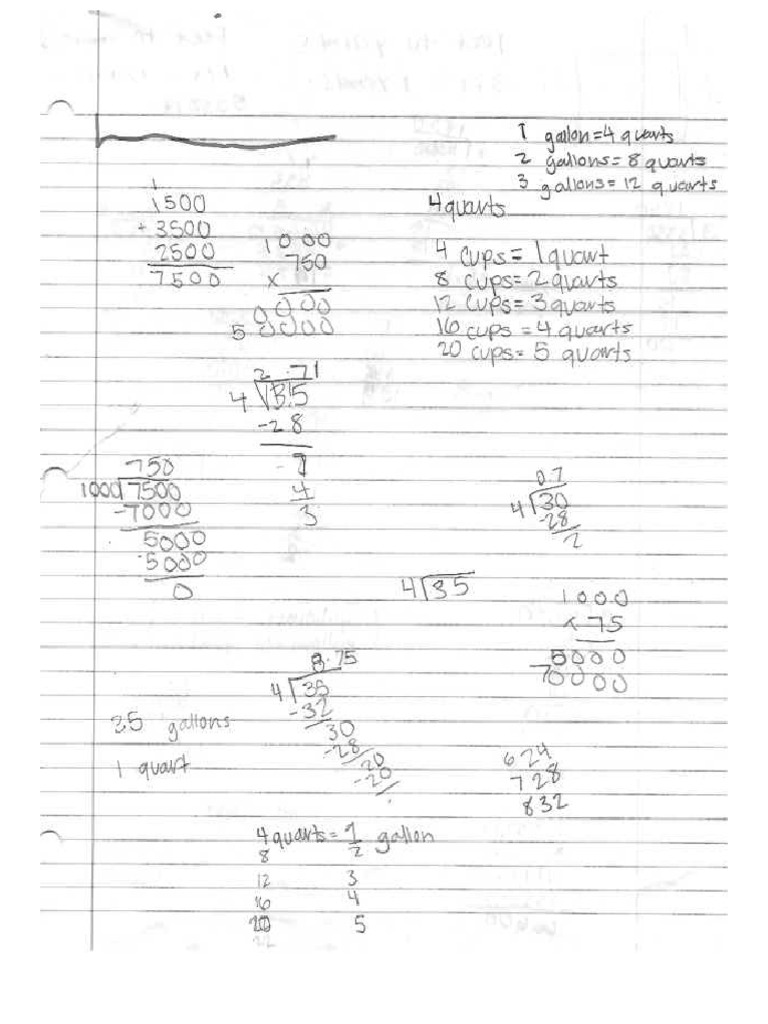 1 gallon=4 quarts
2 gallons= 8 quarts
3 gallons= 12 quarts
1
1500
+ 3500
2500
7500
1000
750
x
0000
50000
4 quarts
4 cups= 1 quart
8 cups= 2 quarts
12 cups= 3 quarts
16 cups = 4 quarts
20 cups= 5 quarts
2.71
4
-28
4
3
750
1000 7500
-7000
5000
5000
0
0.7
4 30
-28
2
4 35
1000
x 75
5000
70000
8.75
4 35
-32
30
-28
20
-20
25 gallons
1 quart
624
728
832
4 quarts= 1 gallon
8 2
12 3
16 4
20 5
22